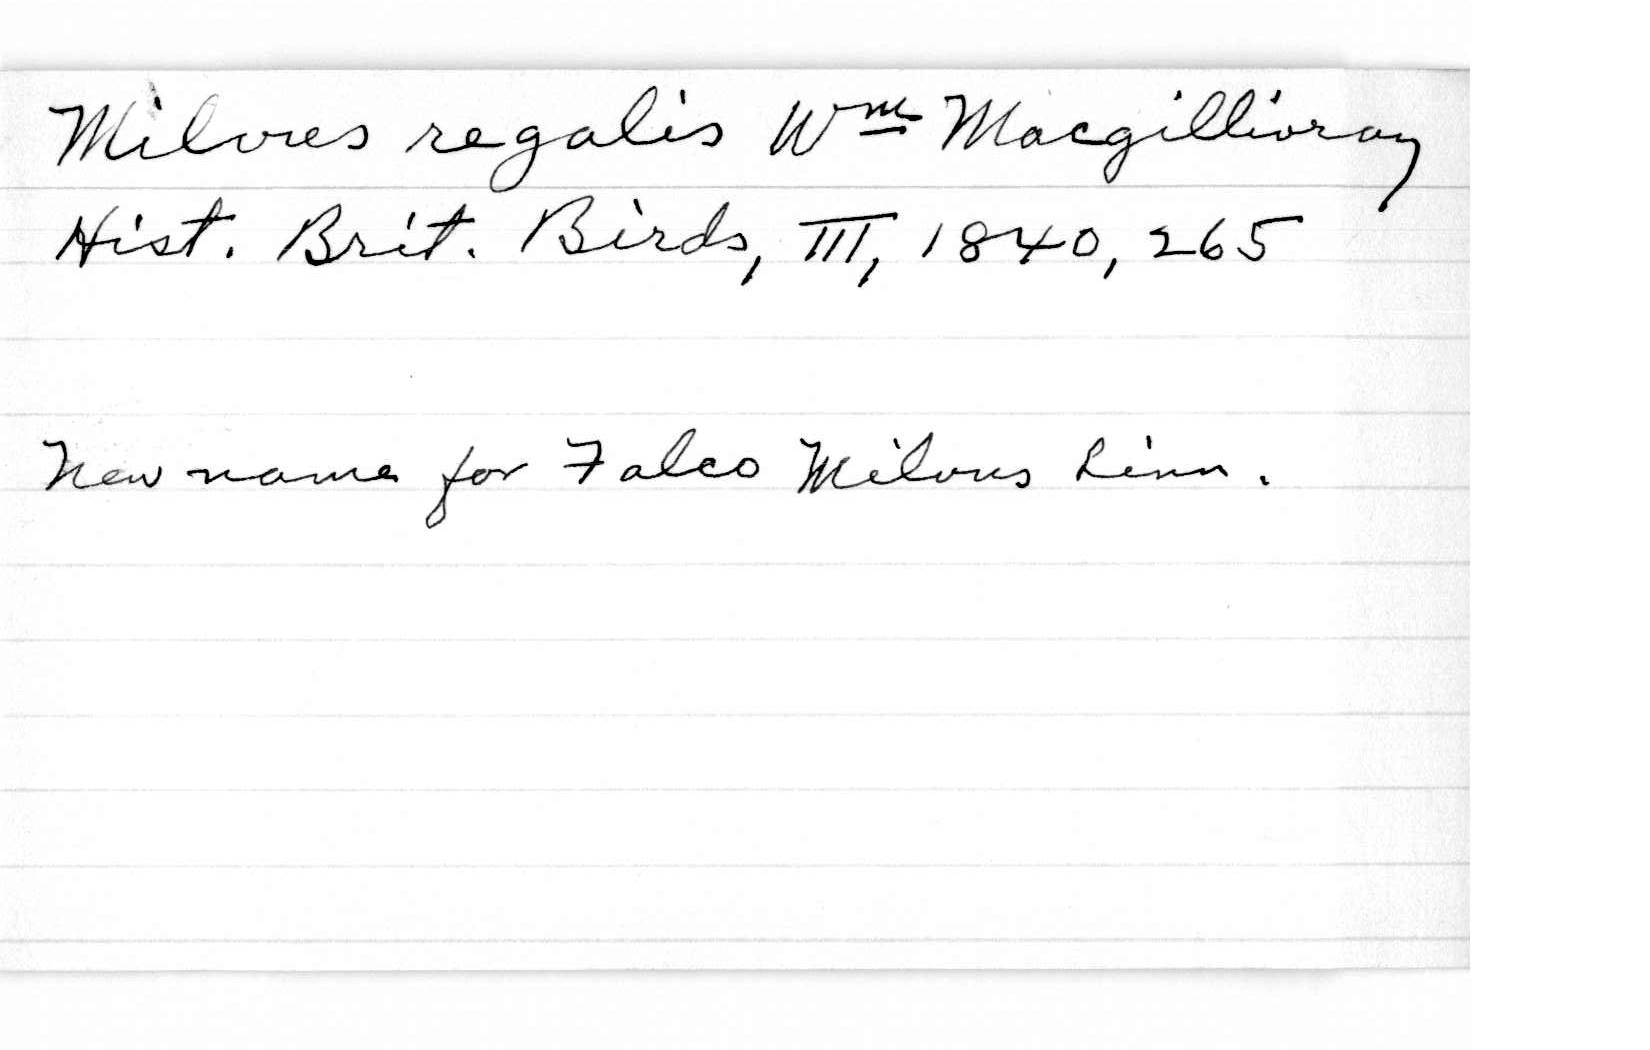 Milvus regalis Wm Macgillivray
Hist. Brit. Birds, III, 1840, 265
New name for Falco Milvus Linn.